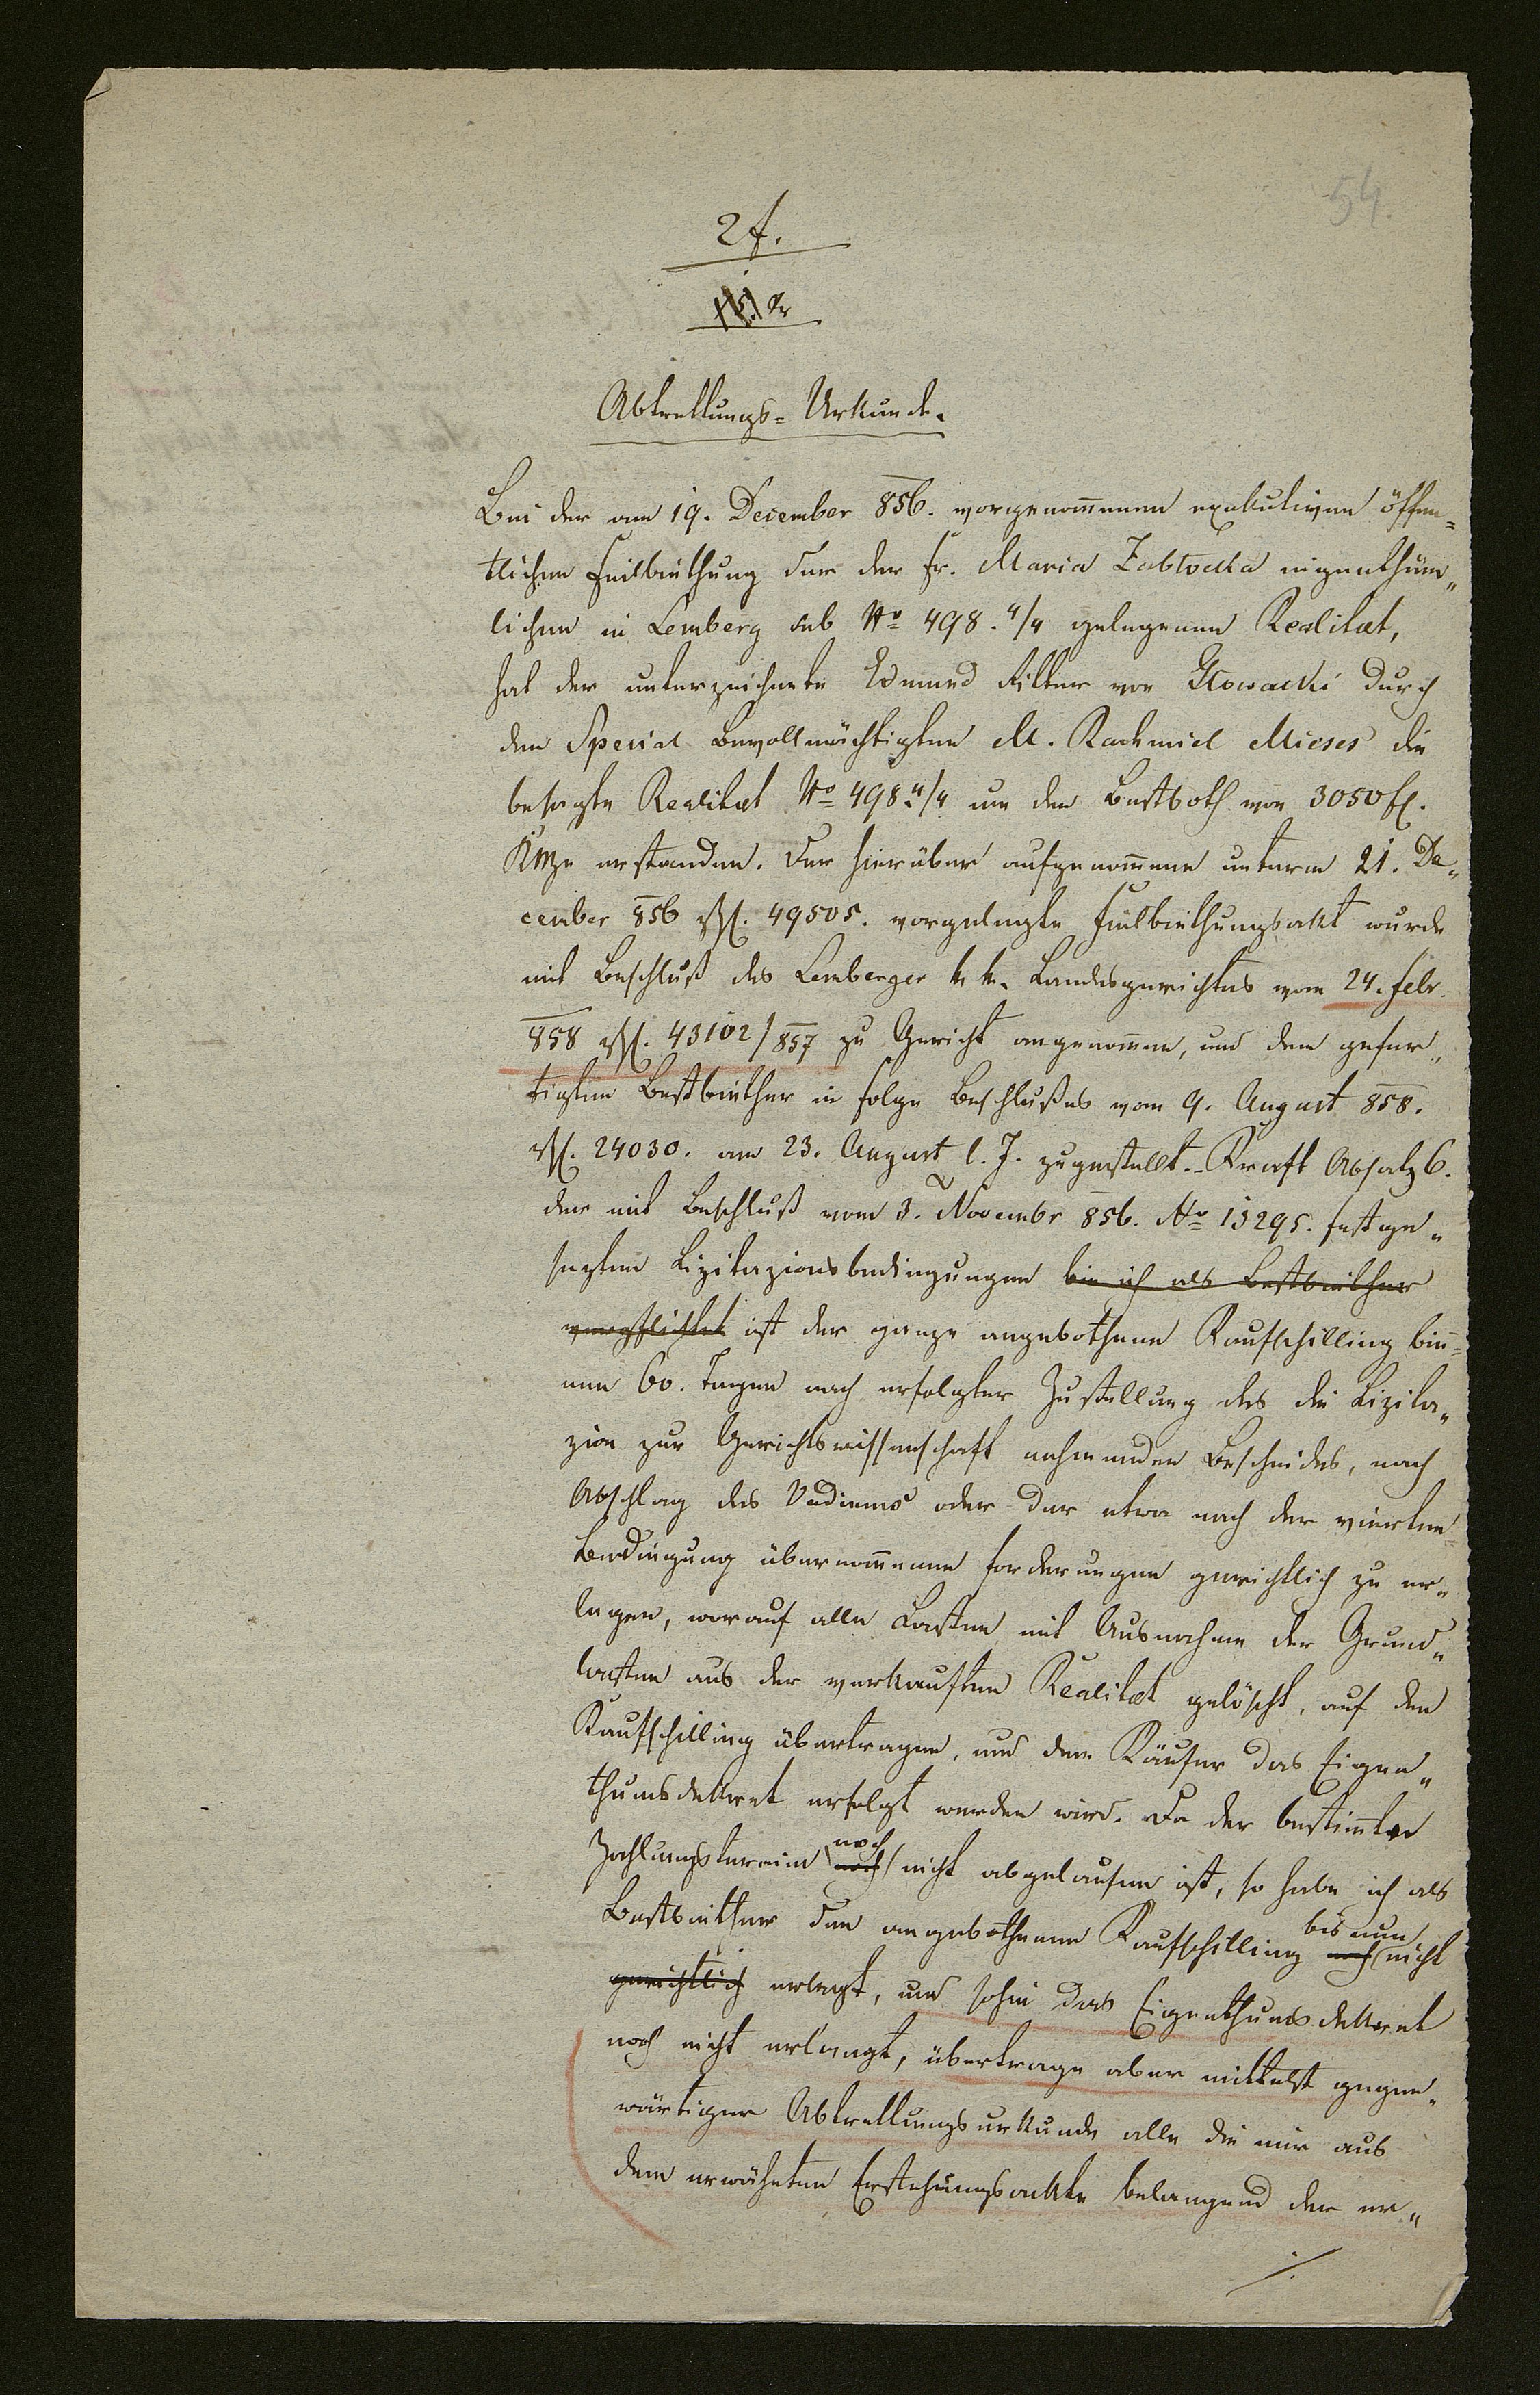 54.
2f.
Abtrettungs-Urkunde.
Bei der am 19. December 856. vorgenommenen exekutiven öffen=
tlichen Feilbiethung der der Fr. Maria Zabłocka eigenthüm„
lichen in Lemberg sub No 498. 4/4 gelegenen Realitæt,
hat der unterzeichnete Edmund Ritter von Głowacki durch
den Special Bevollmächtigten M. Rachmiel Mieses die
besagte Realitæt No 498 4/4 um den Bestboth von 3050 f.
KMze erstanden. Der hierüber aufgenommene unterm 21. De„
cember 856 Zl. 49505. vorgelegte Feilbiethungsakt wurde
mit Beschluß des Lemberger k. k. Landesgerichtes vom 24. Febr.
858 Zl. 43102/857 zu Gericht angenommen, und dem gefer„
tigten Bestbiether in Folge Beschlußes vom 9. August 858.
Zl. 24030. am 23. August l. J. zugestellt. Kraft Absatz 6.
der mit Beschluß vom 3. Novembr 856. No 13295. festge„
setzten Lizitazionsbedingungen bin ich als Bestbiether
verpflichtet ist der ganze angebothene Kaufschilling bin=
nen 60. Tagen nach erfolgter Zustellung des die Lizita„
zion zur Gerichtswissenschaft nehmenden Bescheides, nach
Abschlag des Vadiums oder der etwa nach der vierten
Bedingung übernommenen Forderungen gerichtlich zu er„
legen, worauf alle Lasten mit Ausnahme der Grund„
lasten aus der verkauften Realitæt gelöscht, auf den
Kaufschilling übertragen, und dem Käufer das Eigen„
thumsdekret erfolgt werden wird. Da der bestimmte
Zahlungstermin noch noch nicht abgelaufen ist, so habe ich als
Bestbiether den angebothenen Kaufschilling noch bis nun nicht
gerichtlich erlegt, und sohin das Eigenthumsdekret
noch nicht erlangt, übertrage aber mittelst gegen„
wärtiger Abtrettungsurkunde alle die mir aus
dem erwähnten Erstehungsakte belangend der er„
./.